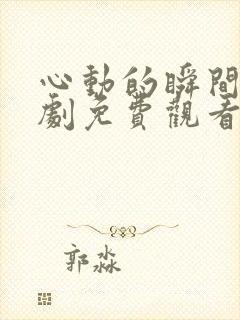 心動的瞬間
劇免費觀看
郭淼